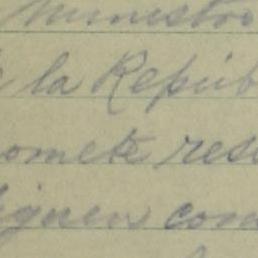 Ministro
la Repúb
omete res
ignen com